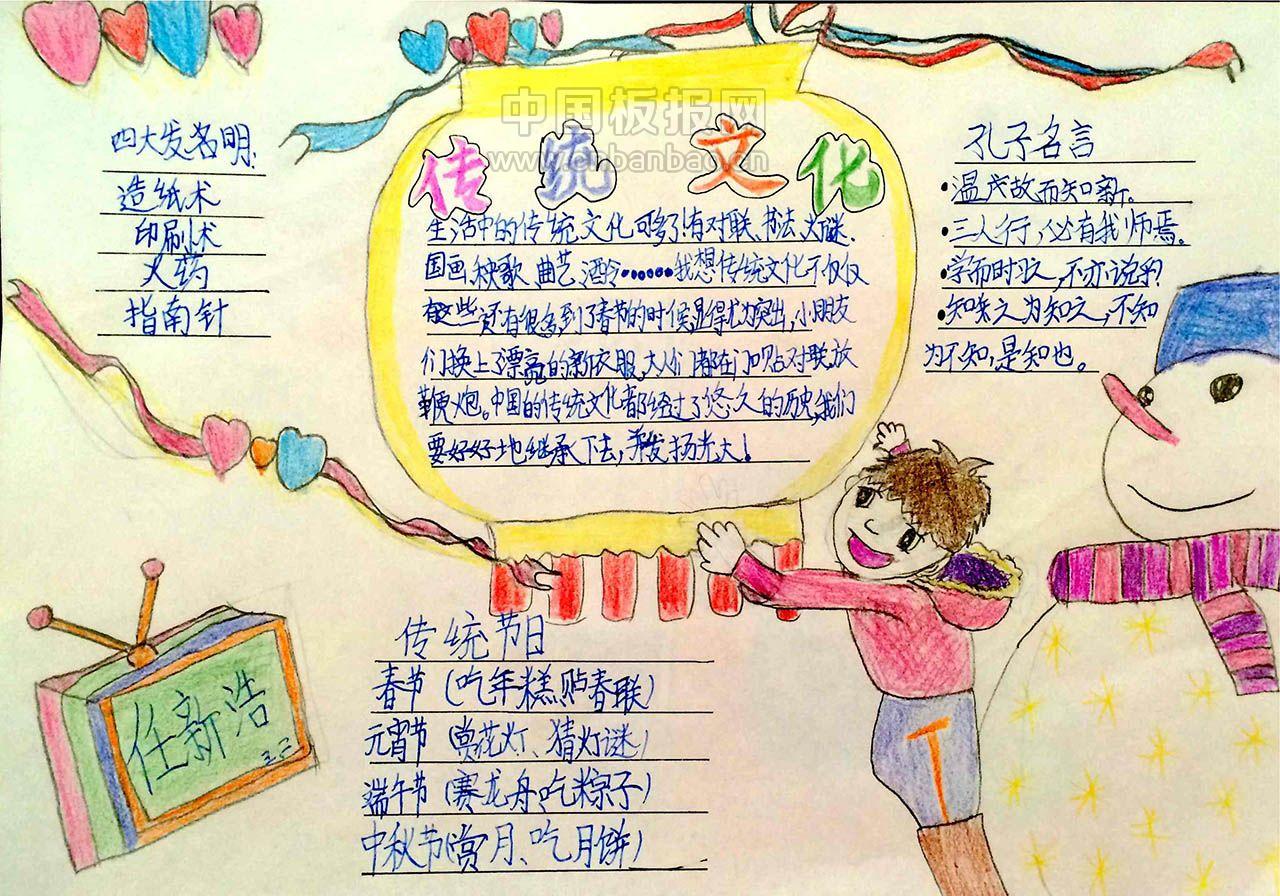 中国板报网
www.cnbanbao.cn
传统文化
四大发名明:
造纸术
印刷术
火药
指南针
生活中的传统文化可多了!有对联、书法、灯谜、
国画、秧歌、曲艺、酒令……我想传统文化不仅仅
有这些,还有很多,到了春节的时候显得尤为突出,小朋友
们换上了漂亮的新衣服,大人们都在门口贴对联,放
鞭炮。中国的传统文化都经过了悠久的历史,我们
要好好地继承下去,并发扬光大!
孔子名言
•温故而知新。
•三人行,必有我师焉。
•学而时习,不亦说
•知之为知之,不知
为不知,是知也。
传统节日
春节(吃年糕、贴春联)
元宵节(赏花灯、猜灯谜)
端午节(赛龙舟、吃粽子)
中秋节(赏月、吃月饼)
任新浩